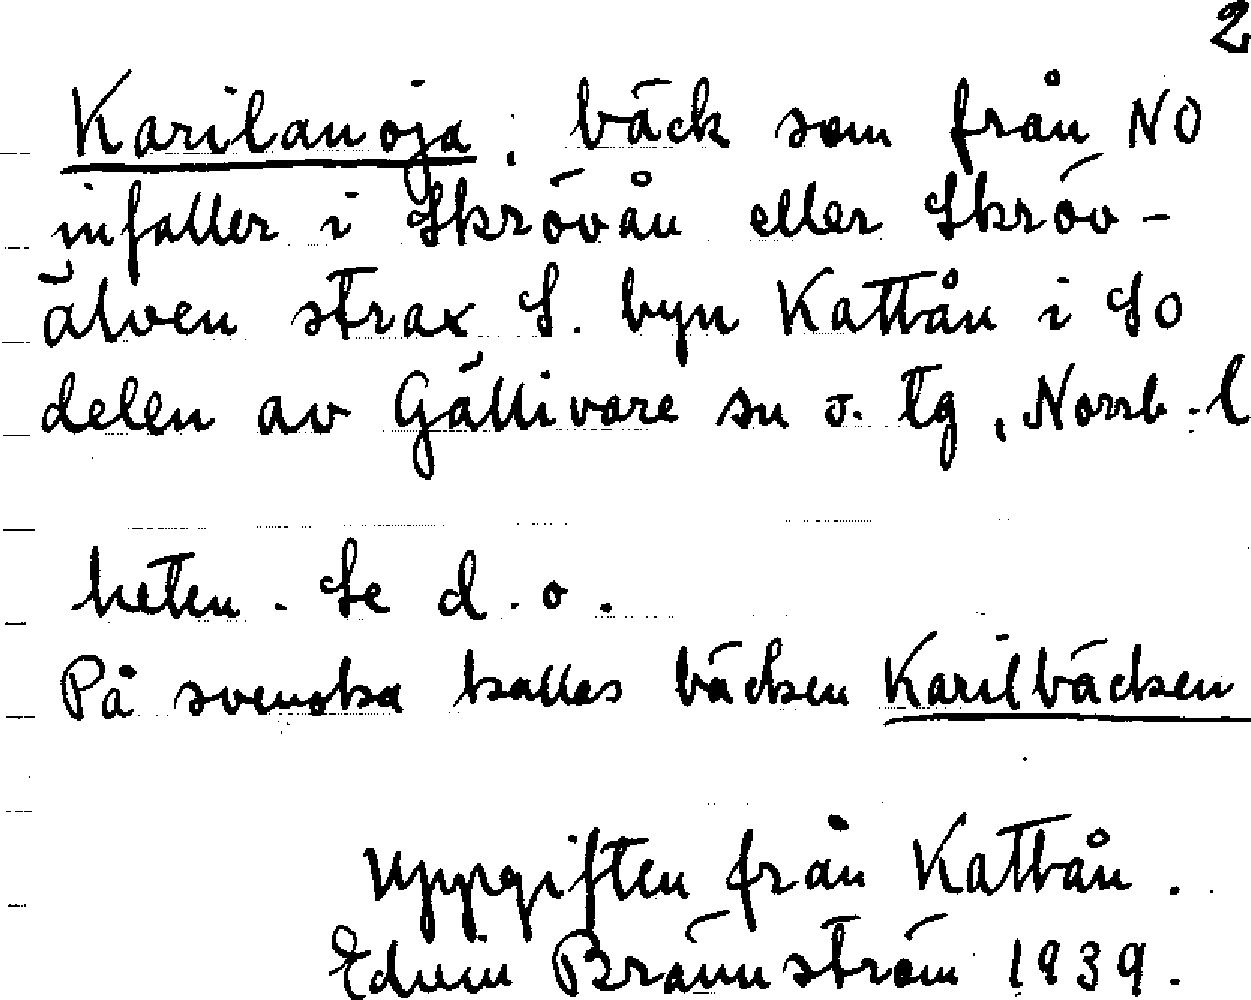 2
Karilanoja, bäck som från NO
infaller i Skrövån eller Skröv-
älven strax S. byn Kattån i SO
delen av Gällivare sn o. tg, Norrb. l
heten. Se d. o.
På svenska kallas bäcken Karilbäcken
Uppgiften från Kattån.
Edvin Brännström 1939.